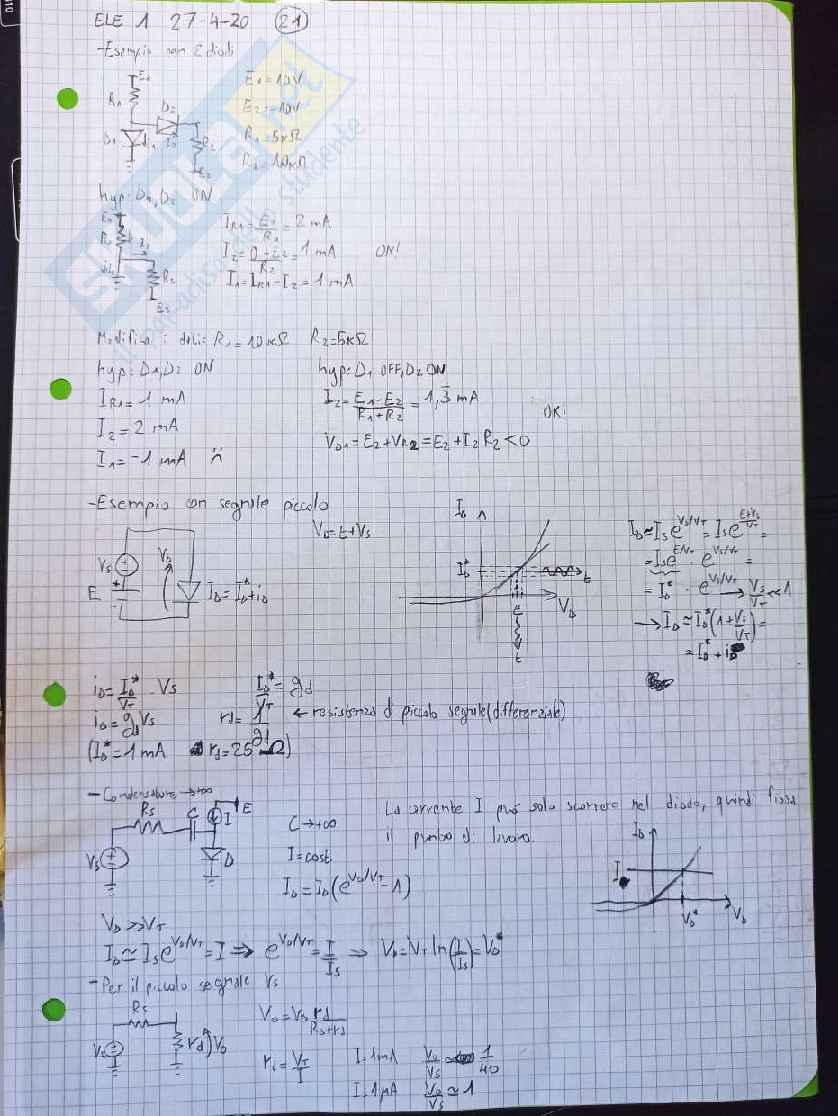 ELE 1 27-4-20 (21)
-Esempio con 2 diodi
E1
R1
D2
D1
I1
I2
R2
E2
E1=10V
E2=-10V
R1=5kΩ
R2=10kΩ
hyp: D1,D2 ON
E1
R1
R2
E2
IR1=E1/R1=2 mA
I2=0-E2/R2=1 mA ON!
I1=IR1-I2=1 mA
Modifica i dati: R1=10kΩ R2=5kΩ
hyp: D1,D2 ON
IR1=1 mA
I2=2 mA
I1=-1 mA
hyp: D1 OFF, D2 ON
I2=E1-E2/R1+R2=1,3 mA
OK!
VD1=E2+VR2=E2+I2R2<0
-Esempio con segnale piccolo
VD=E+Vs
Vs
E
VD
ID=ID*+iD
ID
ID*
t
E
VD
t
ID≃Is e^VD/VT=Is e^E+Vs/VT=
=Is e^E/VT · e^Vs/VT=
=ID* · e^Vs/VT → Vs/VT≪1
→ID≃ID*(1+Vs/VT)=
=ID*+iD
iD=ID*/VT · Vs
ID*/VT=gd
iD=gd Vs
rd=1/gd ← resistenza di piccolo segnale (differenziale)
(ID*=1 mA rd=25Ω)
-Condensatore →+∞
Rs
C
I
E
Vs
D
C→+∞
I=cost
La corrente I può solo scorrere nel diodo, quindi fissa
il punto di lavoro.
ID=ID(e^VD/VT-1)
ID
I
VD*
VD
VD≫VT
ID≃Is e^VD/VT=I ⇒ e^VD/VT=I/Is ⇒ VD=VT ln(I/Is)=VD*
-Per il piccolo segnale Vs
Rs
Vs
rd
VD
VD=Vs rd/Rs+rd
rd=VT/I
I=1mA VD/Vs≃1/40
I=1μA VD/Vs≃1